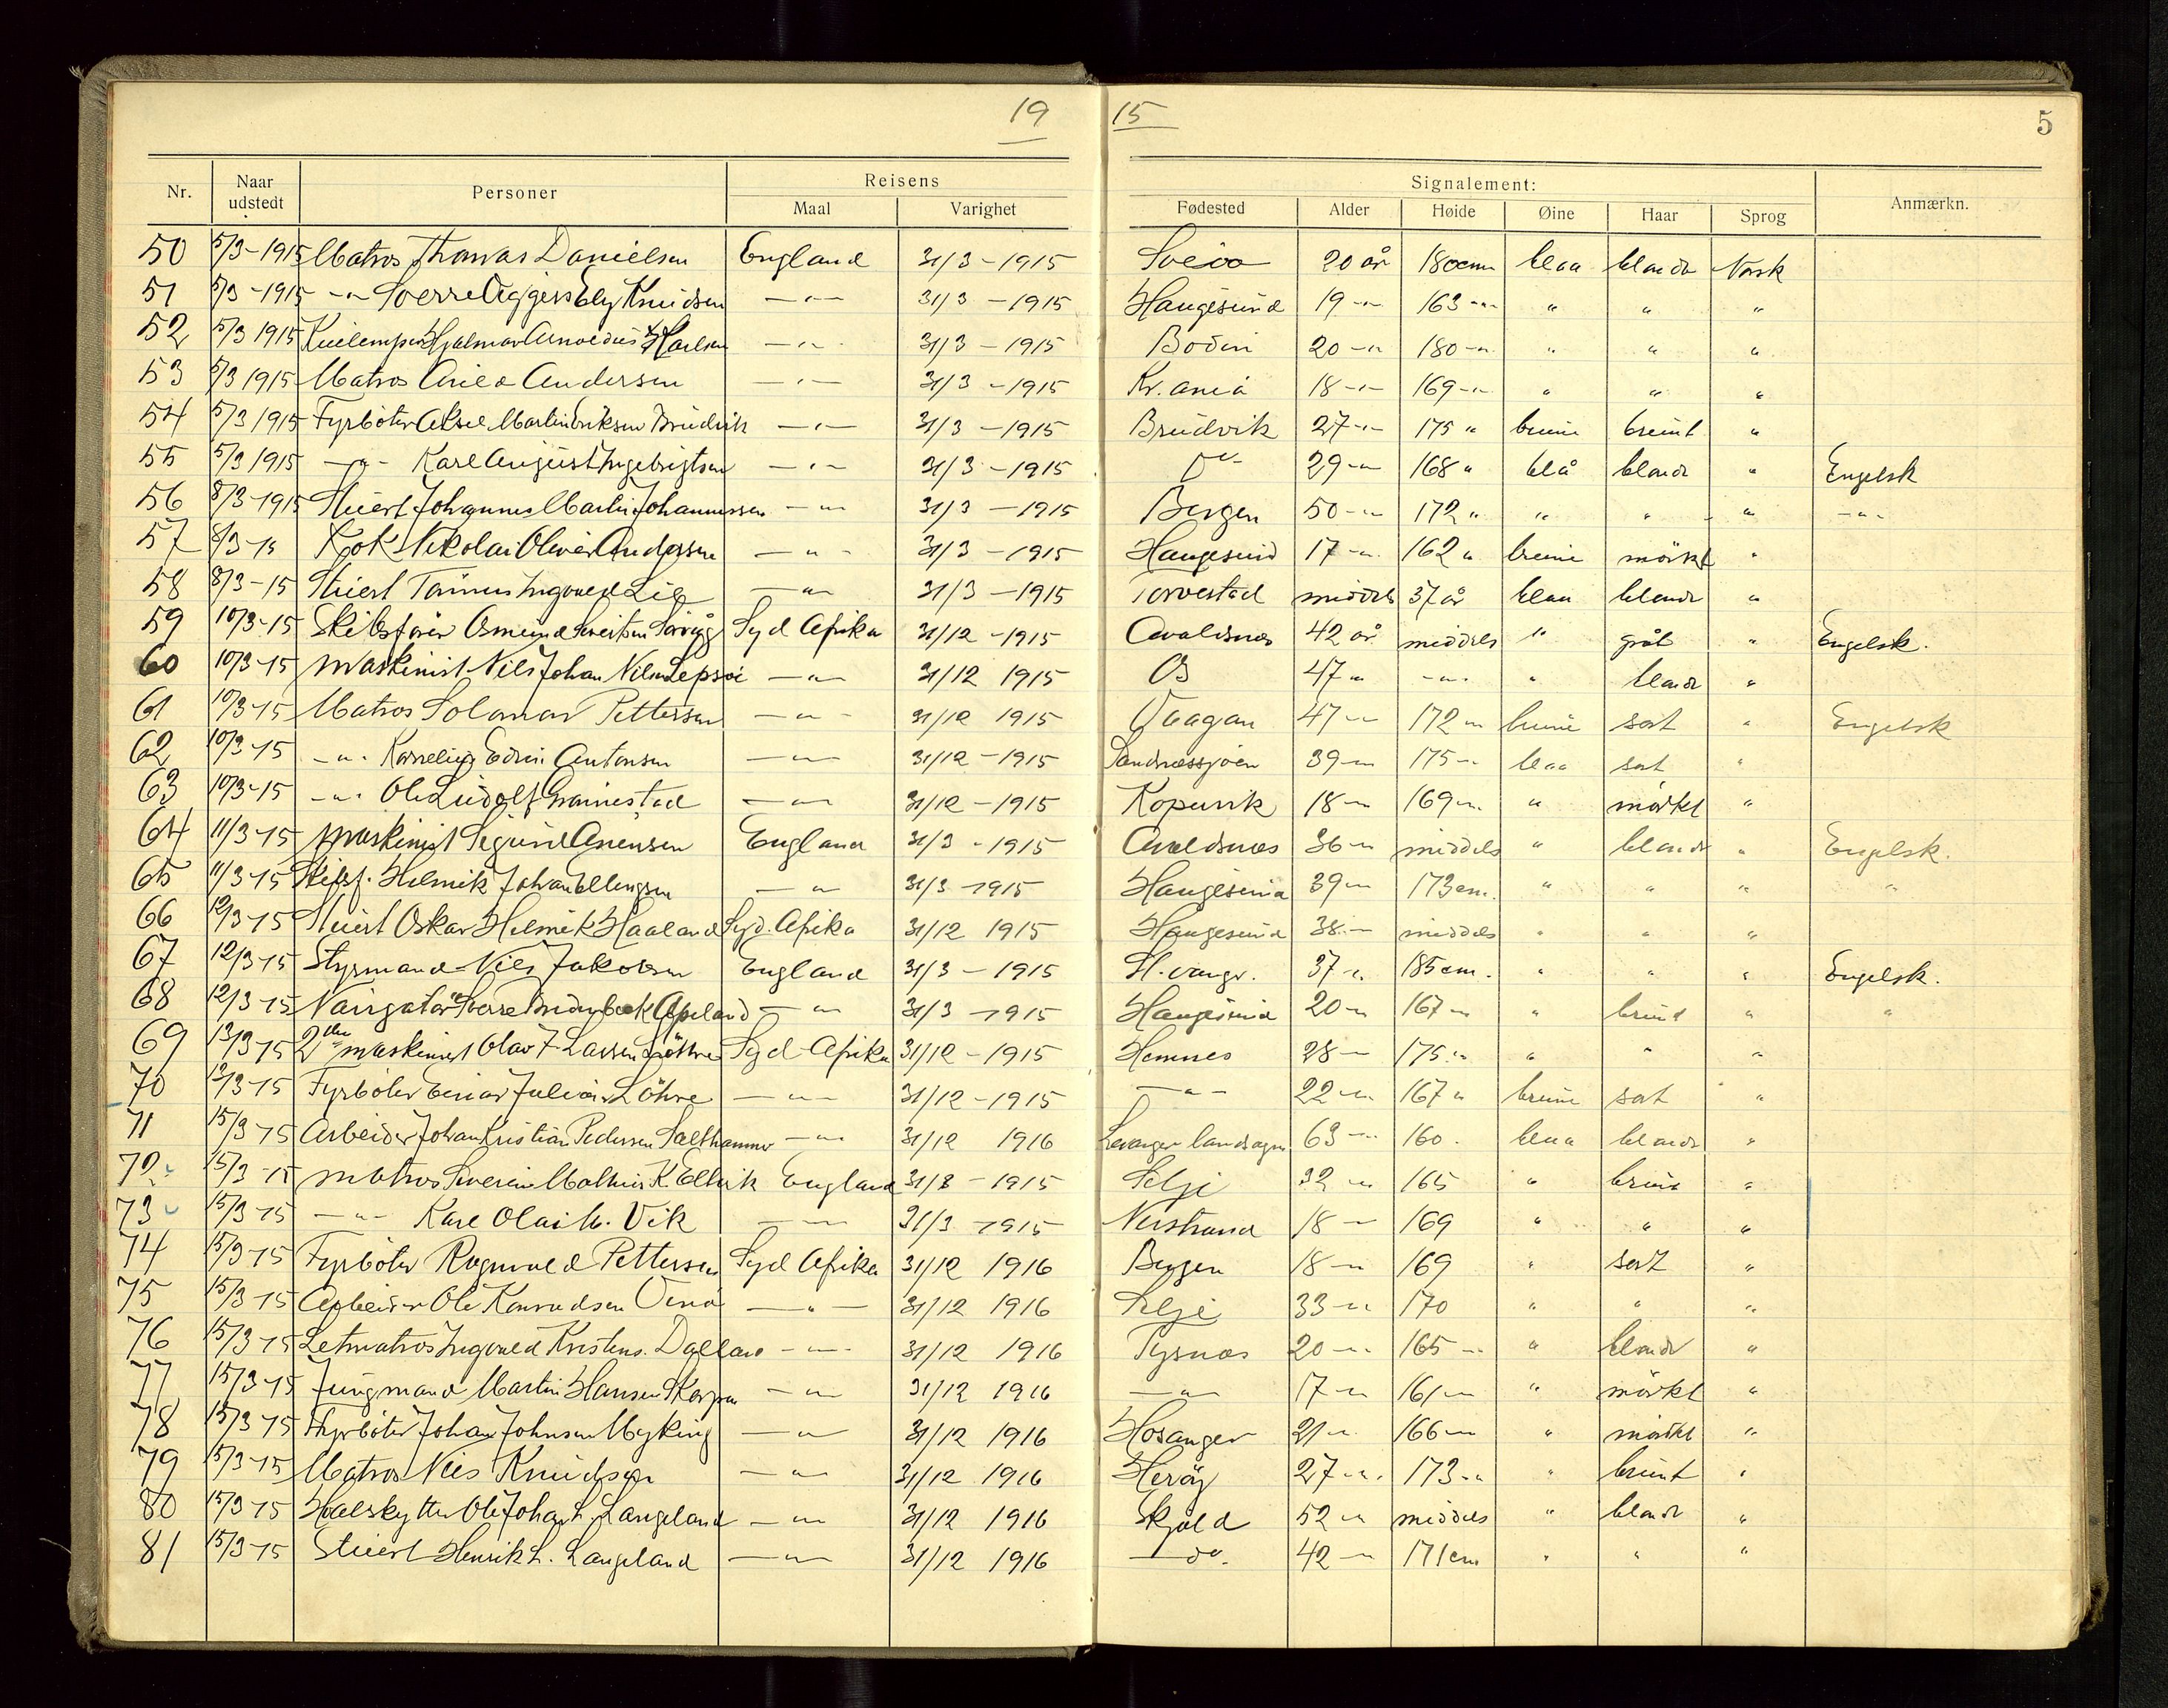 19 15
5
Nr. Naar udstedt Personer Reisens Maal Varighet Signalement: Fødested Alder Høide Øine Haar Sprog Anmærkn.
50 5/3-1915 Matros Thomas Danielsen England 31/3-1915 Sveio 20 år 180cm blaa blondt Norsk
51 5/3-1915 -"- Sverre Knudsen -"- 31/3-1915 Haugesund 19-"- 163-"- " " "
52 5/3 1915 Hjalmar -"- 31/3-1915 Bodin 20-"- 180-"- " " "
53 5/3 1915 Matros Andersen -"- 31/3-1915 Kr.ania 18-"- 169-"- " " "
54 5/3 1915 Fyrböter Aksel Martin Eriksen Brudvik -"- 31/3-1915 Brudvik 27-"- 175 " brune brunt "
55 5/3 1915 -"- Karl August Ingebrigtsen -"- 31/3-1915 Do 29-"- 168 " blå blondt " Engelsk
56 8/3-1915 Stuert Johannes Martin Johannessen -"- 31/3-1915 Bergen 50-"- 172 " " " " -"-
57 8/3-15 Kok Nikolai Oliver Andersen -"- 31/3-1915 Haugesund 17-"- 162 " brune mörkt "
58 8/3-15 Stuert Ingvald Lie -"- 31/3-1915 Torvestad middels 37 år blaa blondt "
59 10/3-15 Skibsförer Osmund Syd Afrika 31/12-1915 Avaldsnes 42 år middels " gråt " Engelsk.
60 10/3-15 Maskinist Nils Johan Nilsen Lepsöe -"- 31/12 1915 Os 47 " -"- " blondt "
61 10/3-15 Matros Solomon Pettersen -"- 31/12 1915 Vaagan 47-"- 172 " brune sort " Engelsk
62 10/3-15 -"- Kornelius Edvin Antonsen -"- 31/12-1915 Sandnessjøen 39-"- 175-"- blaa sort "
63 10/3-15 -"- Ole Ludolf Grannestad -"- 31/12-1915 Kopervik 18-"- 169-"- " mörkt "
64 11/3-15 Maskinist Sigurd Anensen England 31/3-1915 Avaldsnes 36-"- middels " blondt " Engelsk.
65 11/3-15 Skibsf. Helmik Johan Ellingsen -"- 31/3-1915 Haugesund 39-"- 173cm. " " " "
66 12/3-15 Stuert Oskar Helmik Haaland Syd. Afrika 31/12 1915 Haugesund 38-"- middels " " "
67 12/3-15 Styrmand Nils Jakobsen England 31/3-1915 St.vanger. 37 " 185cm. " " " Engelsk.
68 12/3-15 Navigatör Sverre Apeland -"- 31/3-1915 Haugesund 20-"- 167-"- " brunt " "
69 13/3-15 2den maskinist Olav F. Larsen Syd Afrika 31/12-1915 Hemnes 28-"- 175-"- " " "
70 13/3-15 Fyrböter Einar Julian Löhre -"- 31/12-1915 -"- 22-"- 167 " brune sort "
71 15/3-15 Arbeider Johan Kristian Pedersen Salthammer -"- 31/12 1916 Levanger landsogn 63-"- 160. blaa blondt "
72 15/3-15 Matros Severin Mathias K. Ellvik England 31/3-1915 Selje 32 " 165 " brunt "
73 15/3-15 -"- Karl Olai M. Vik -"- 31/3-1915 Nerstrand 18-"- 169 " " "
74 15/3-15 Fyrböter Ragnvald Pettersen Syd Afrika 31/12 1916 Bergen 18-"- 169 " sort "
75 15/3-15 Arbeider Ole Konradsen -"- 31/12 1916 Selje 33-"- 170 " " "
76 15/3-15 Letmatros Ingvald Kristens. Dalland -"- 31/12 1916 Tysnes 20-"- 165-"- " blondt "
77 15/3-15 Jungmand Martin Hansen Skorpen -"- 31/12 1916 -"- 17-"- 161-"- " mörkt "
78 15/3-15 Fyrböter Johan Johnsen Myking -"- 31/12 1916 Hosanger 21-"- 166-"- " mörkt "
79 15/3-15 Matros Nils Knudsen -"- 31/12 1916 Heröy 27-"- 173-"- " brunt "
80 15/3-15 Hvalskytter Ole Johan L. Langeland -"- 31/12 1916 Skjold 52 " middels " blondt "
81 15/3-15 Stuert Henrik L. Langeland -"- 31/12 1916 -do- 42-"- 171cm " " "